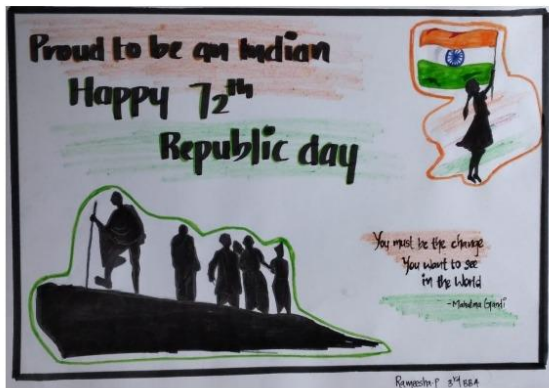 Proud to be an Indian
Happy 72th
Republic day
You must be the change
You want to see
in the World
- Mahatma Gandi
Rameesha.P 3rd BBA